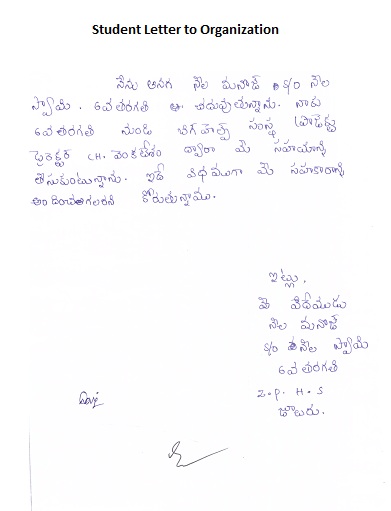 Student Letter to Organization
నేను అనగా నెల మనోజ్ S/O నెల
స్వామి. 6వ తరగతి చదువుతున్నాను. నాకు
6వ తరగతి నుండి బిగ్ హెల్ప్ సంస్థ ప్రాజెక్టు
డైరెక్టర్ CH. వెంకటేశం ద్వారా మీ సహాయాన్ని
తీసుకుంటున్నాను. ఇదే విధముగా మీ సహకారాన్ని
అందించగలరని కోరుతున్నాము.
ఇట్లు.
మీ విధేయుడు
నెల మనోజ్
S/O నెల స్వామి
6వ తరగతి
Z.P.H.S
జూటరు.